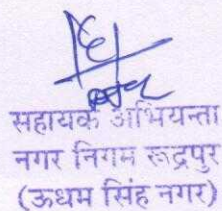 सहायक अभियन्ता
नगर निगम रूद्रपुर
(ऊधम सिंह नगर)